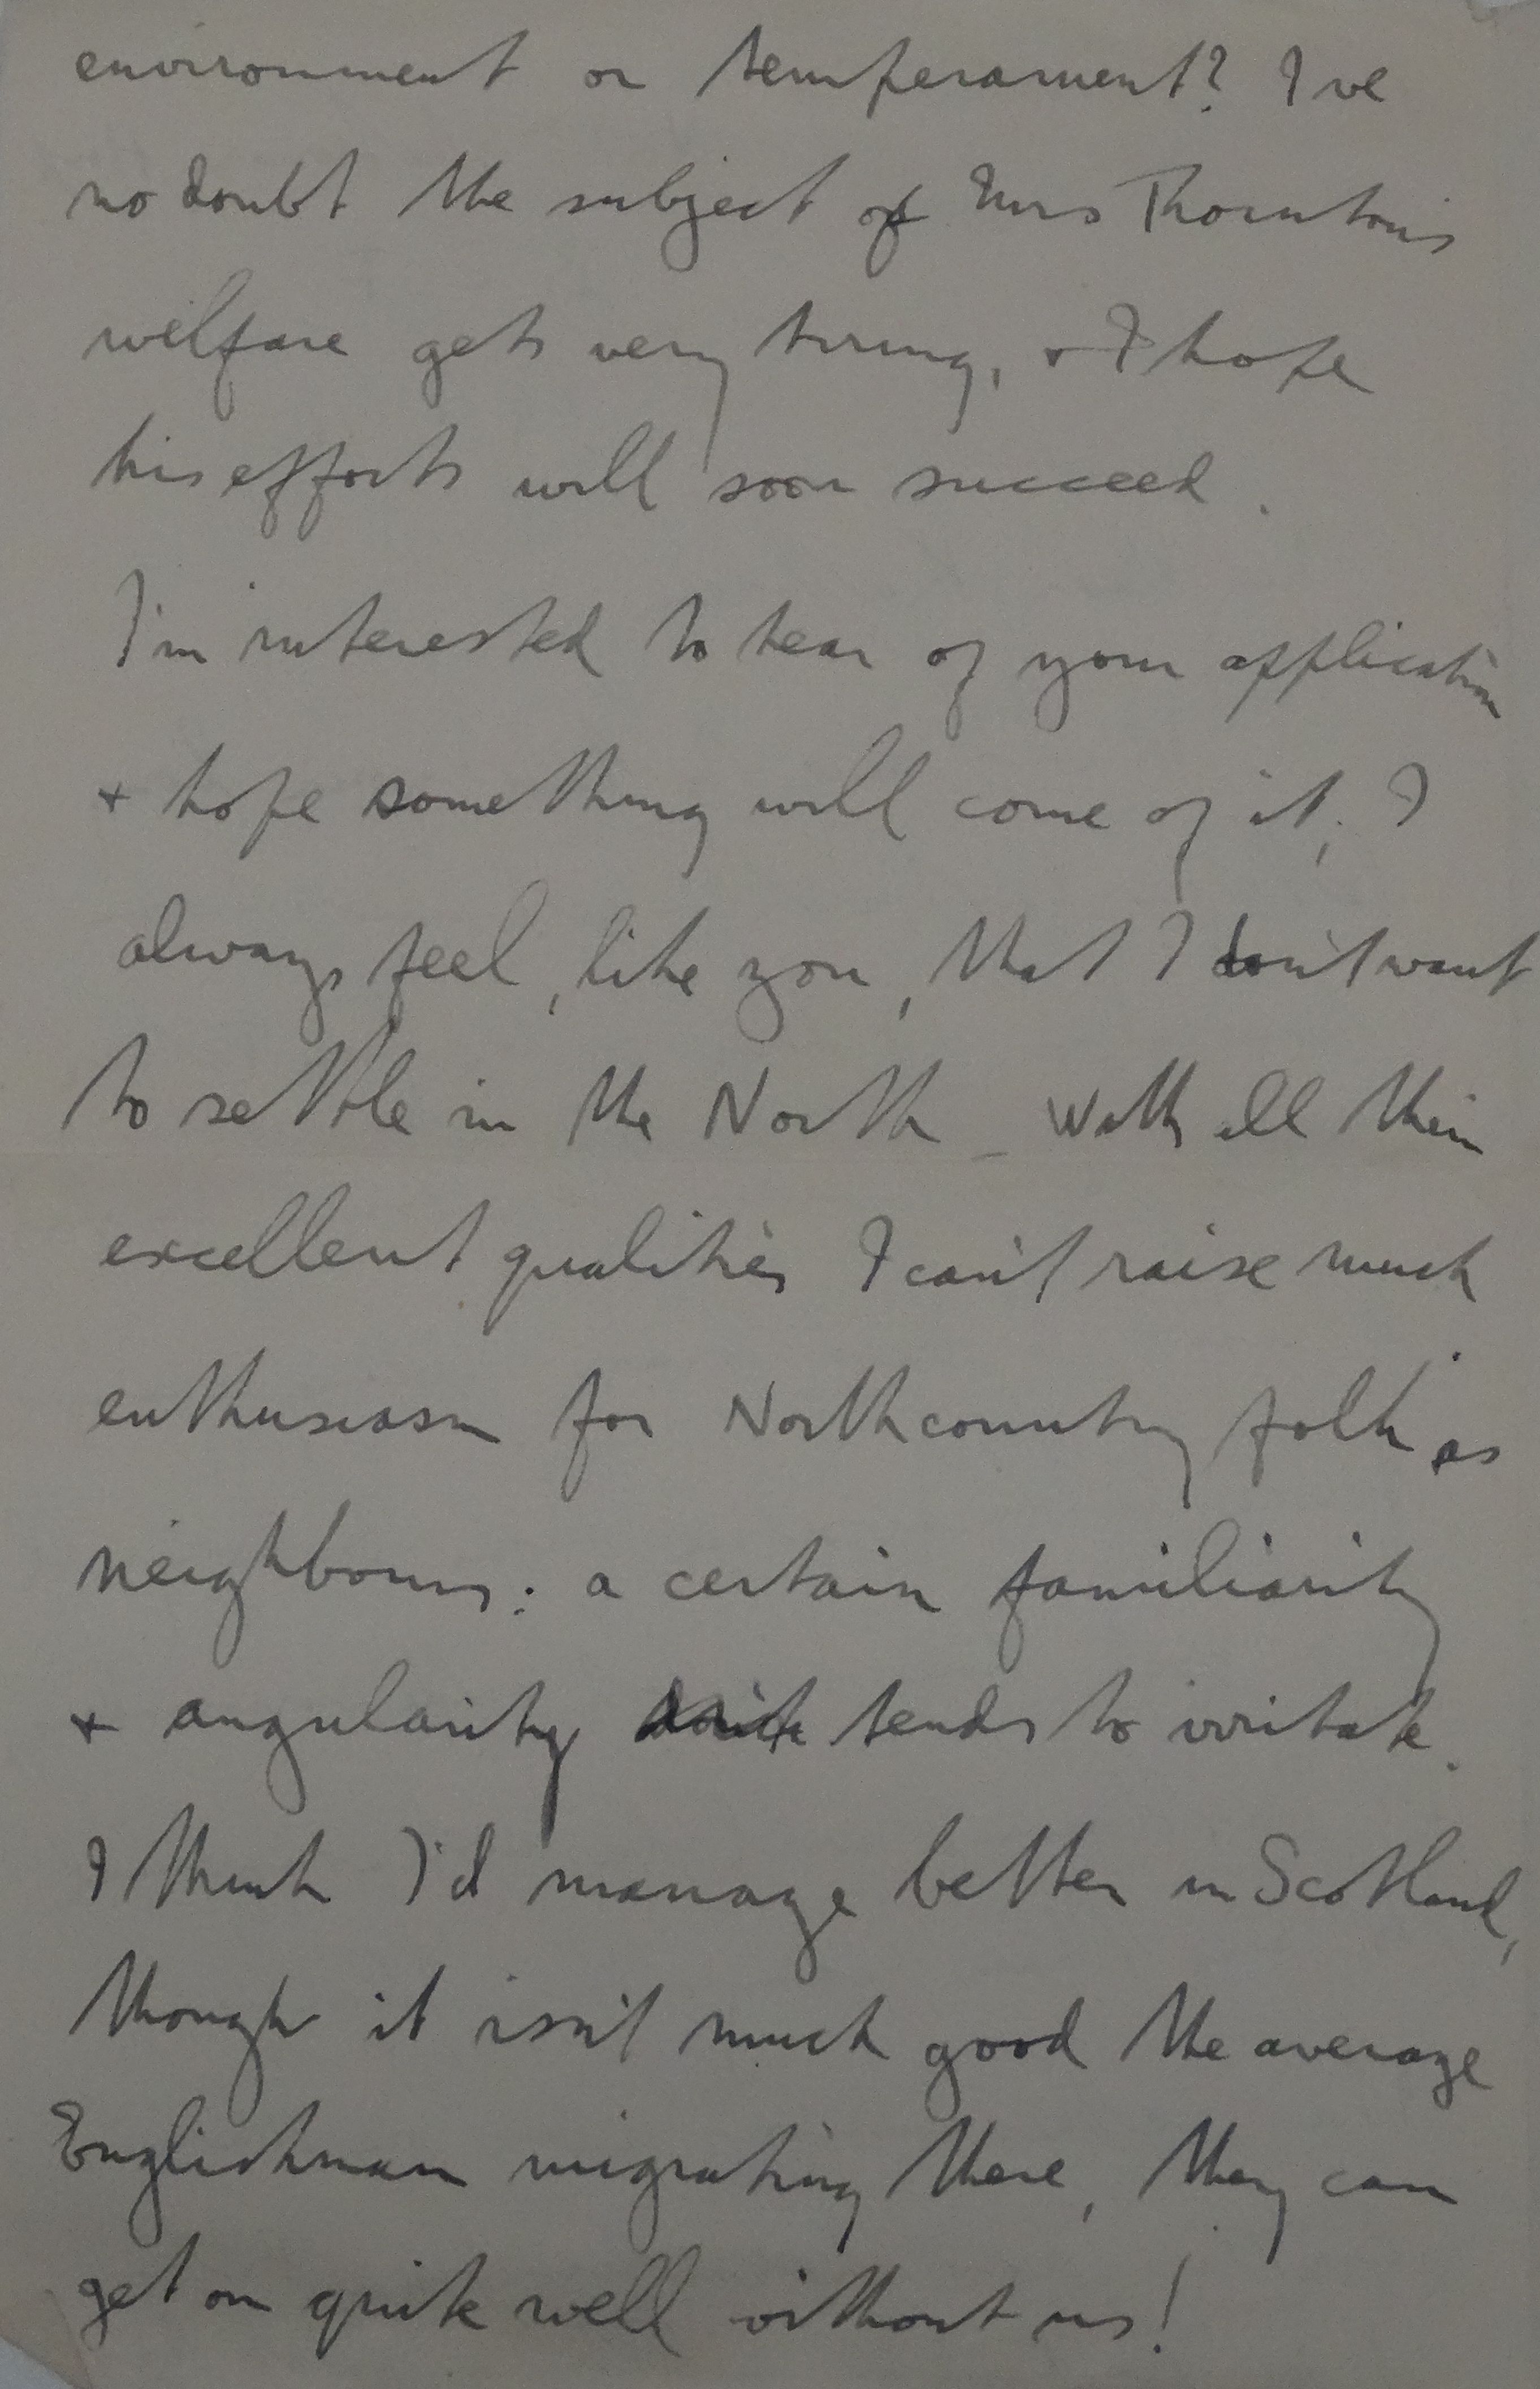 environment or temperament? I've
no doubt the subject of Mrs Thornton's
welfare gets very tiring, & I hope
his efforts will soon succeed.
I'm interested to hear of your application
+ hope something will come of it; I
always feel, like you, that I don't want
to settle in the North - with all their
excellent qualities I can't raise much
enthusiasm for North country folk as
neighbours: a certain familiarity
+ angularity tends to irritate.
I think I'd manage better in Scotland,
though it isn't much good the average
Englishman migrating there, they can
get on quite well without us!